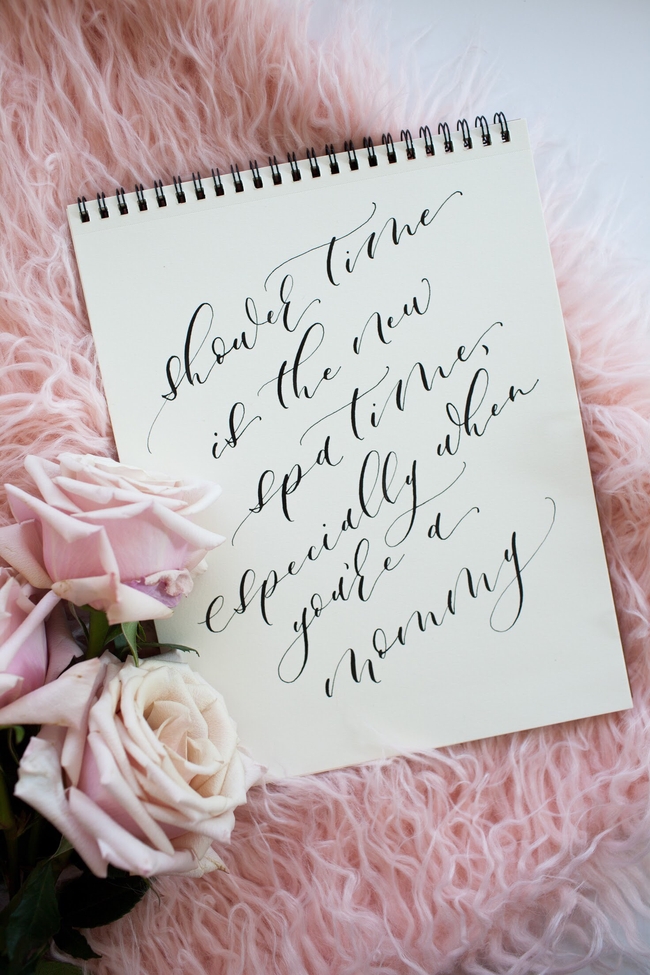 shower time
is the new
spa time,
especially when
you're a
mommy